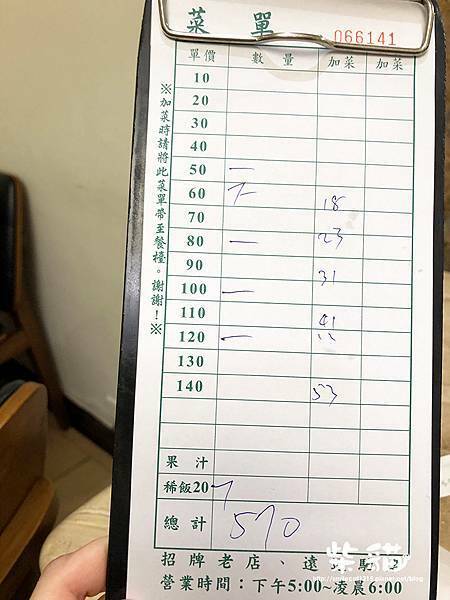 菜 單
066141
單價 數 量 加菜 加菜
10
20
30
40
50 一
60 18
70
80 一 23
90 31
100 一
110 41
120 一
130
140 53
果 汁
稀飯20
總 計 570
※加菜時請將此菜單帶至餐檯。謝謝！※
招牌老店、遠
營業時間：下午5:00~凌晨6:00
柴貓